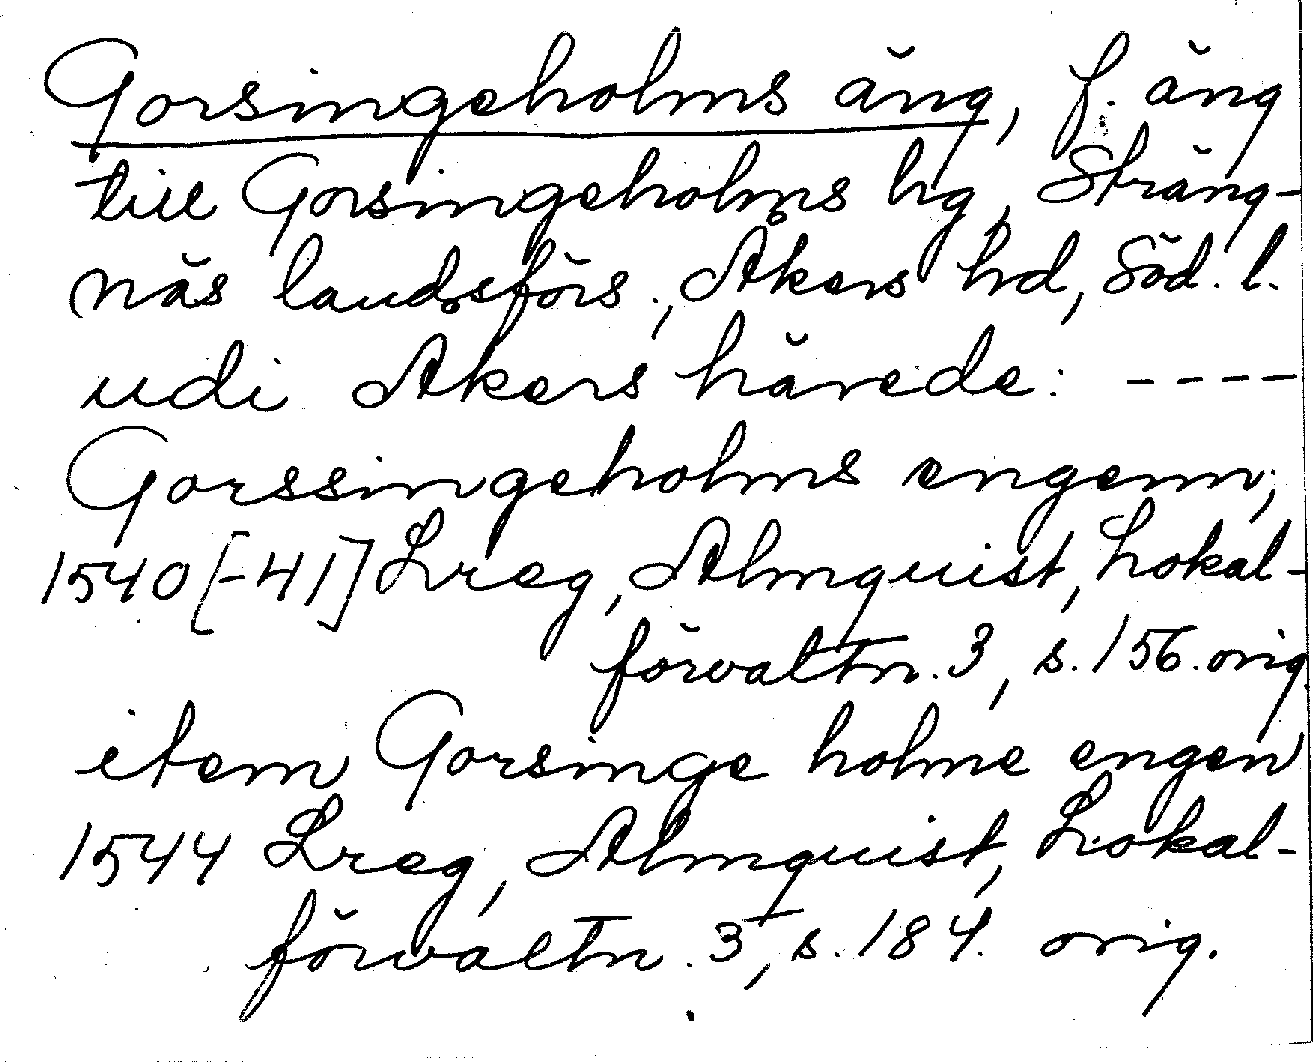 Gorsingeholms äng, f. äng
till Gorsingeholms hg, Sträng-
näs landsförs., Åkers hd, Söd. l.
udi Akers härede: ----
Gorssingeholms engenn;
1540[-41] Lreg, Almquist, Lokal-
förvaltn. 3, s. 156. orig.
item Gorsinge holme engen
1544 Lreg, Almquist, Lokal-
förvaltn. 3, s. 184. orig.